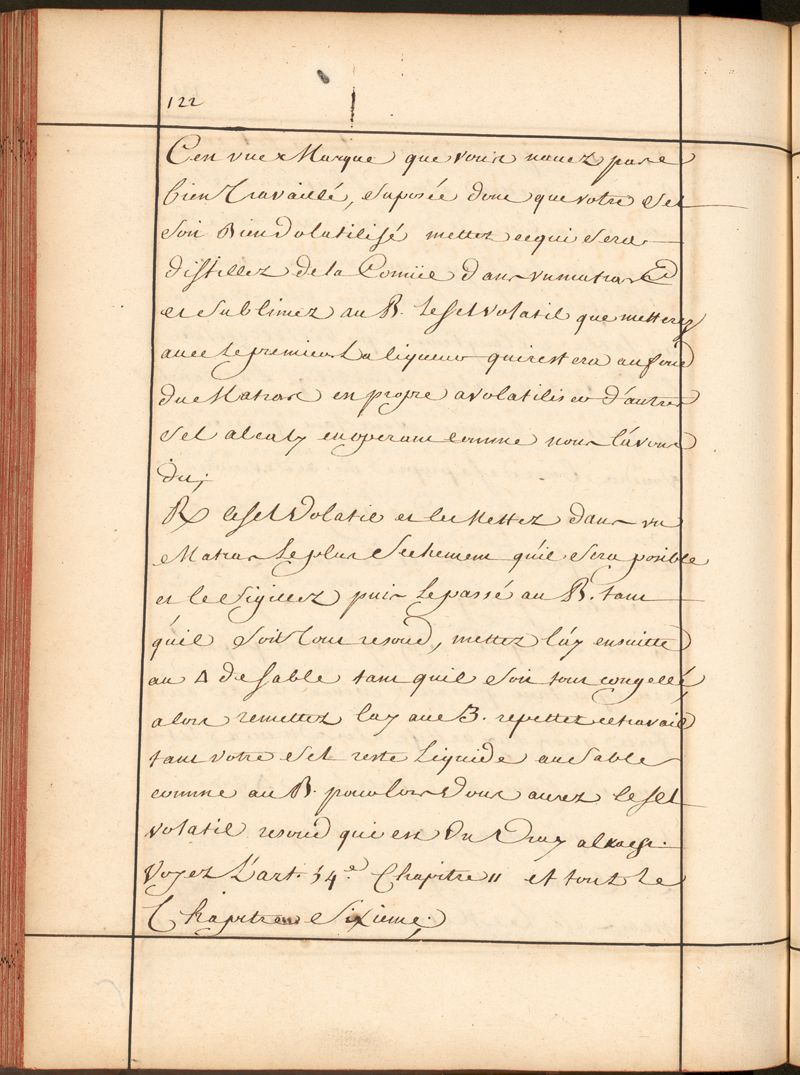 122
C'en vne Marque que vous n'auez pas
bien Travaillé, suposée donc que votre Sel
soit Bien Volatilisé mettez cequi sera
distillez de la Cornüe dans vn matras
et sublimez au B. le sel volatil que metterez
auec le premier La liqueur qui restera au fond
du Matras en propre a volatiliser d'autres
sel alcaly en operant comme nous l'avons
dit;
R le sel Volatil et le Mettez dans vn
Matras Le plus Sechement qu'il sera posible
et le Sigillez puis Le passé au B. tant
qu'il soit Tout resoud, mettez l'ay ensuitte
au △ de sable tant quil soit tout congellé,
alors remettez lay au B. repettez cetravail
tant votre Sel reste Liquide au Sable
comme au B. pour lors Vous aurez le sel
volatil resoud qui est Un Vray alkaest.
Voyez L'art. 54.e Chapitre 11 et tout Le
Chapitre Sixieme.